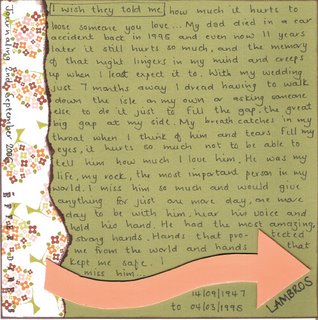 I wish they told me how much it hurts to
lose someone you love... My dad died in a car
accident back in 1995 and even now 11 years
later it still hurts so much, and the memory
of that night lingers in my mind and creeps
up when I least expect it to. With my wedding
just 7 months away I dread having to walk
down the isle on my own or asking someone
else to do it just to fill the gap, the great
big gap at my side. My breath catches in my
throat when I think of him and tears fill my
eyes, it hurts so much not to be able to
tell him how much I love him. He was my
life, my rock, the most important person in my
world. I miss him so much and would give
anything for just one more day, one more
day to be with him, hear his voice and
hold his hand. He had the most amazing,
strong hands. Hands that protected
me from the world and hands that
kept me safe. I
miss him.
14/09/1947
to 04/03/1995
LAMBROS
Journaling 2nd September 2006